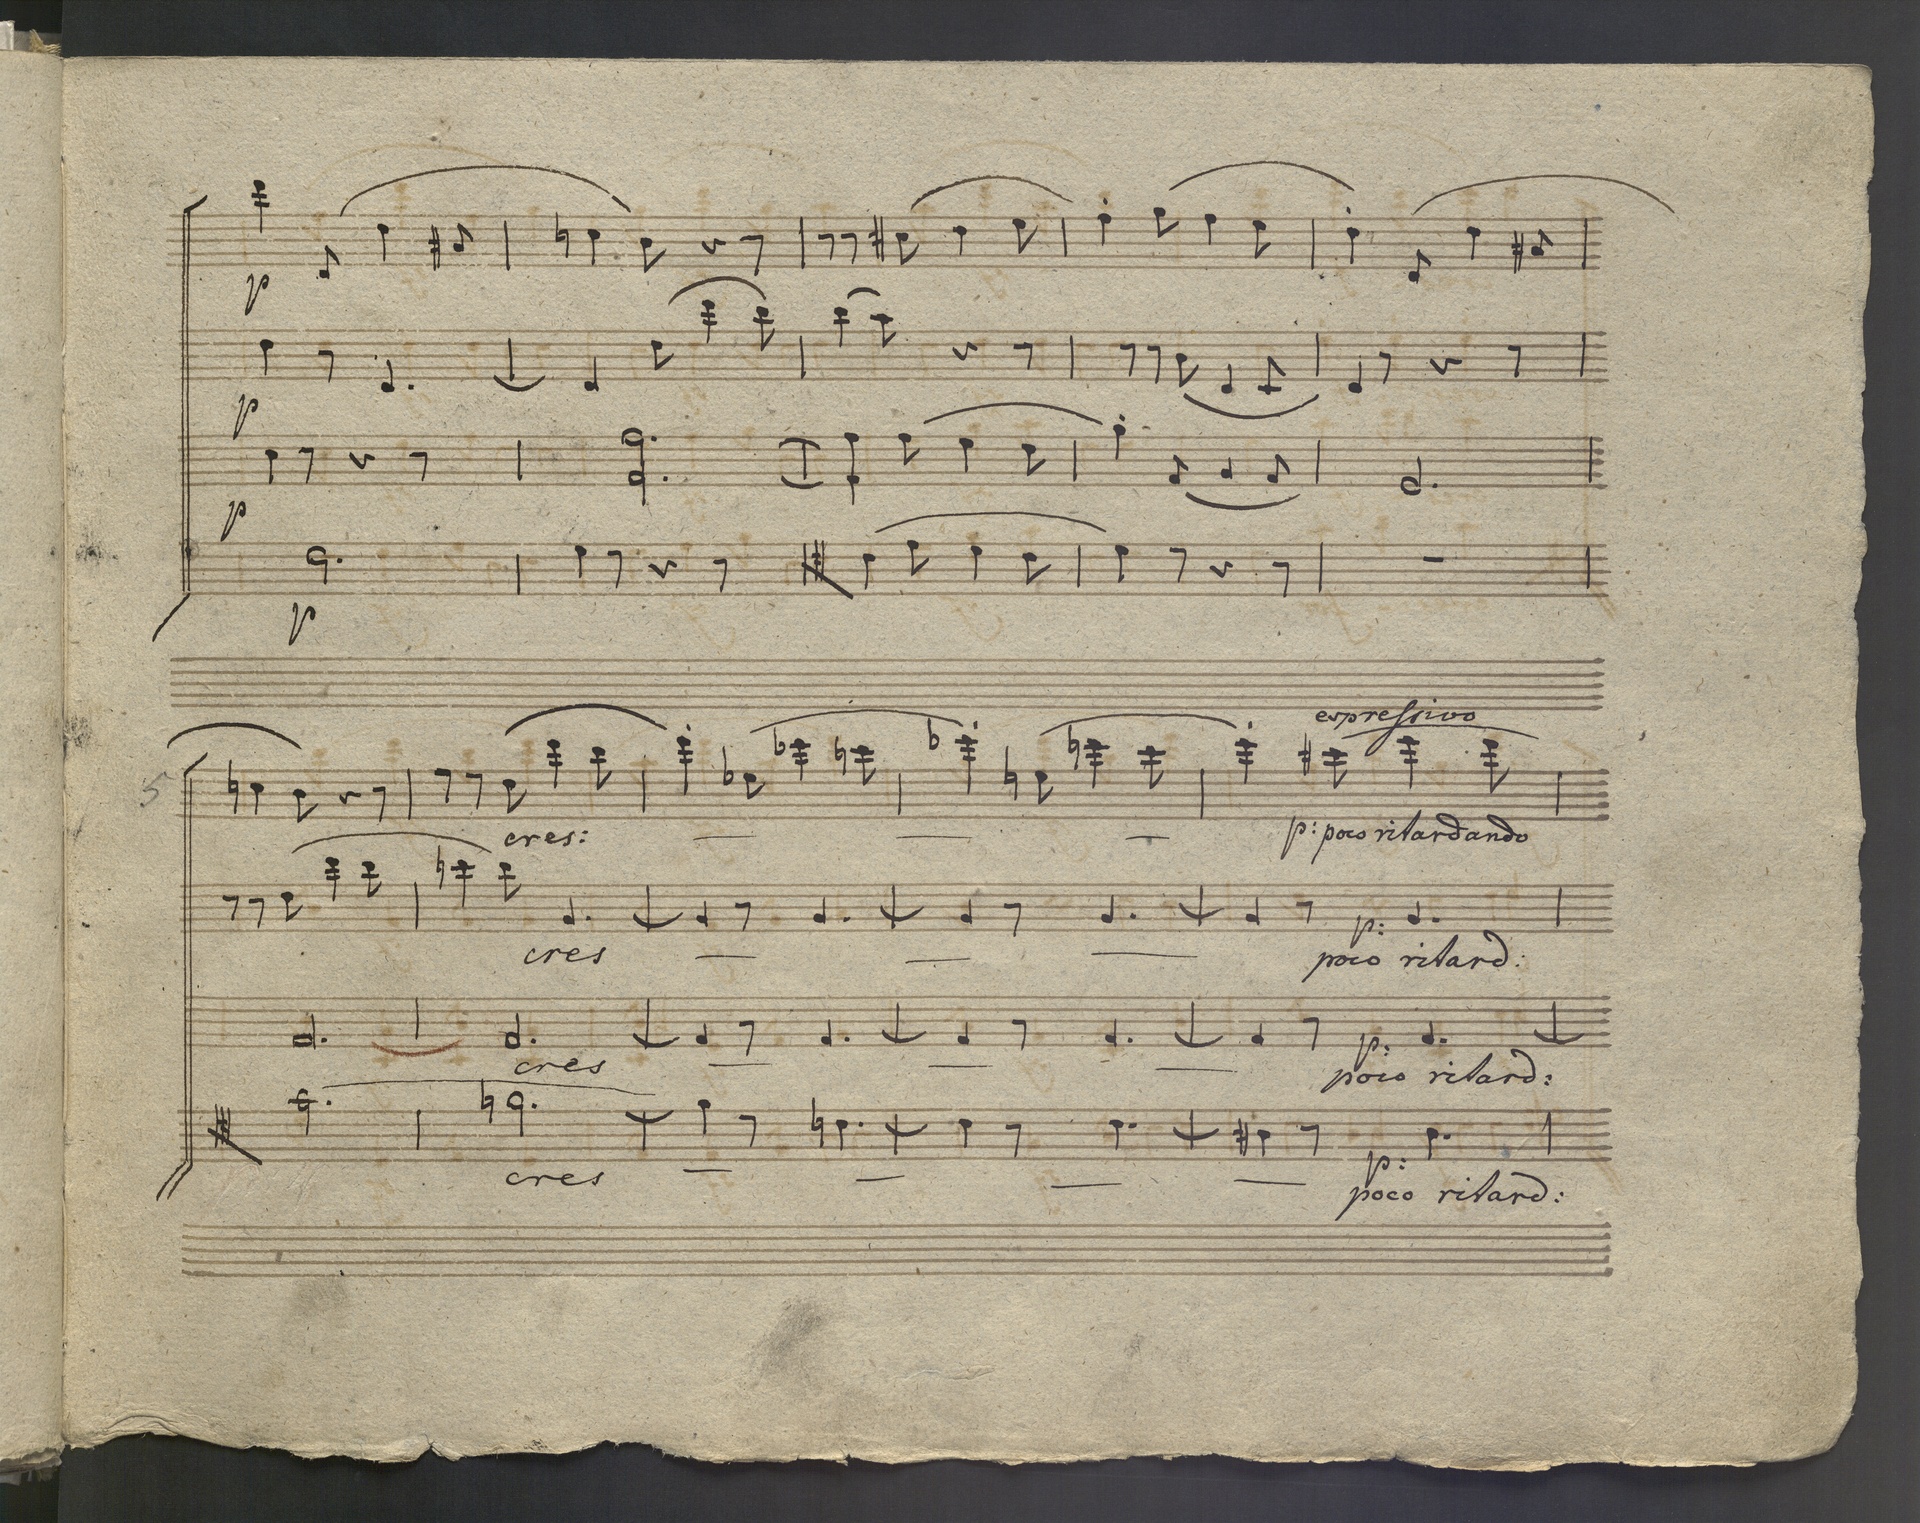 p
p
p
p
espressivo
5
cres:
p: poco ritardando
p:
cres
poco ritard:
p:
cres
poco ritard:
p:
cres
poco ritard: